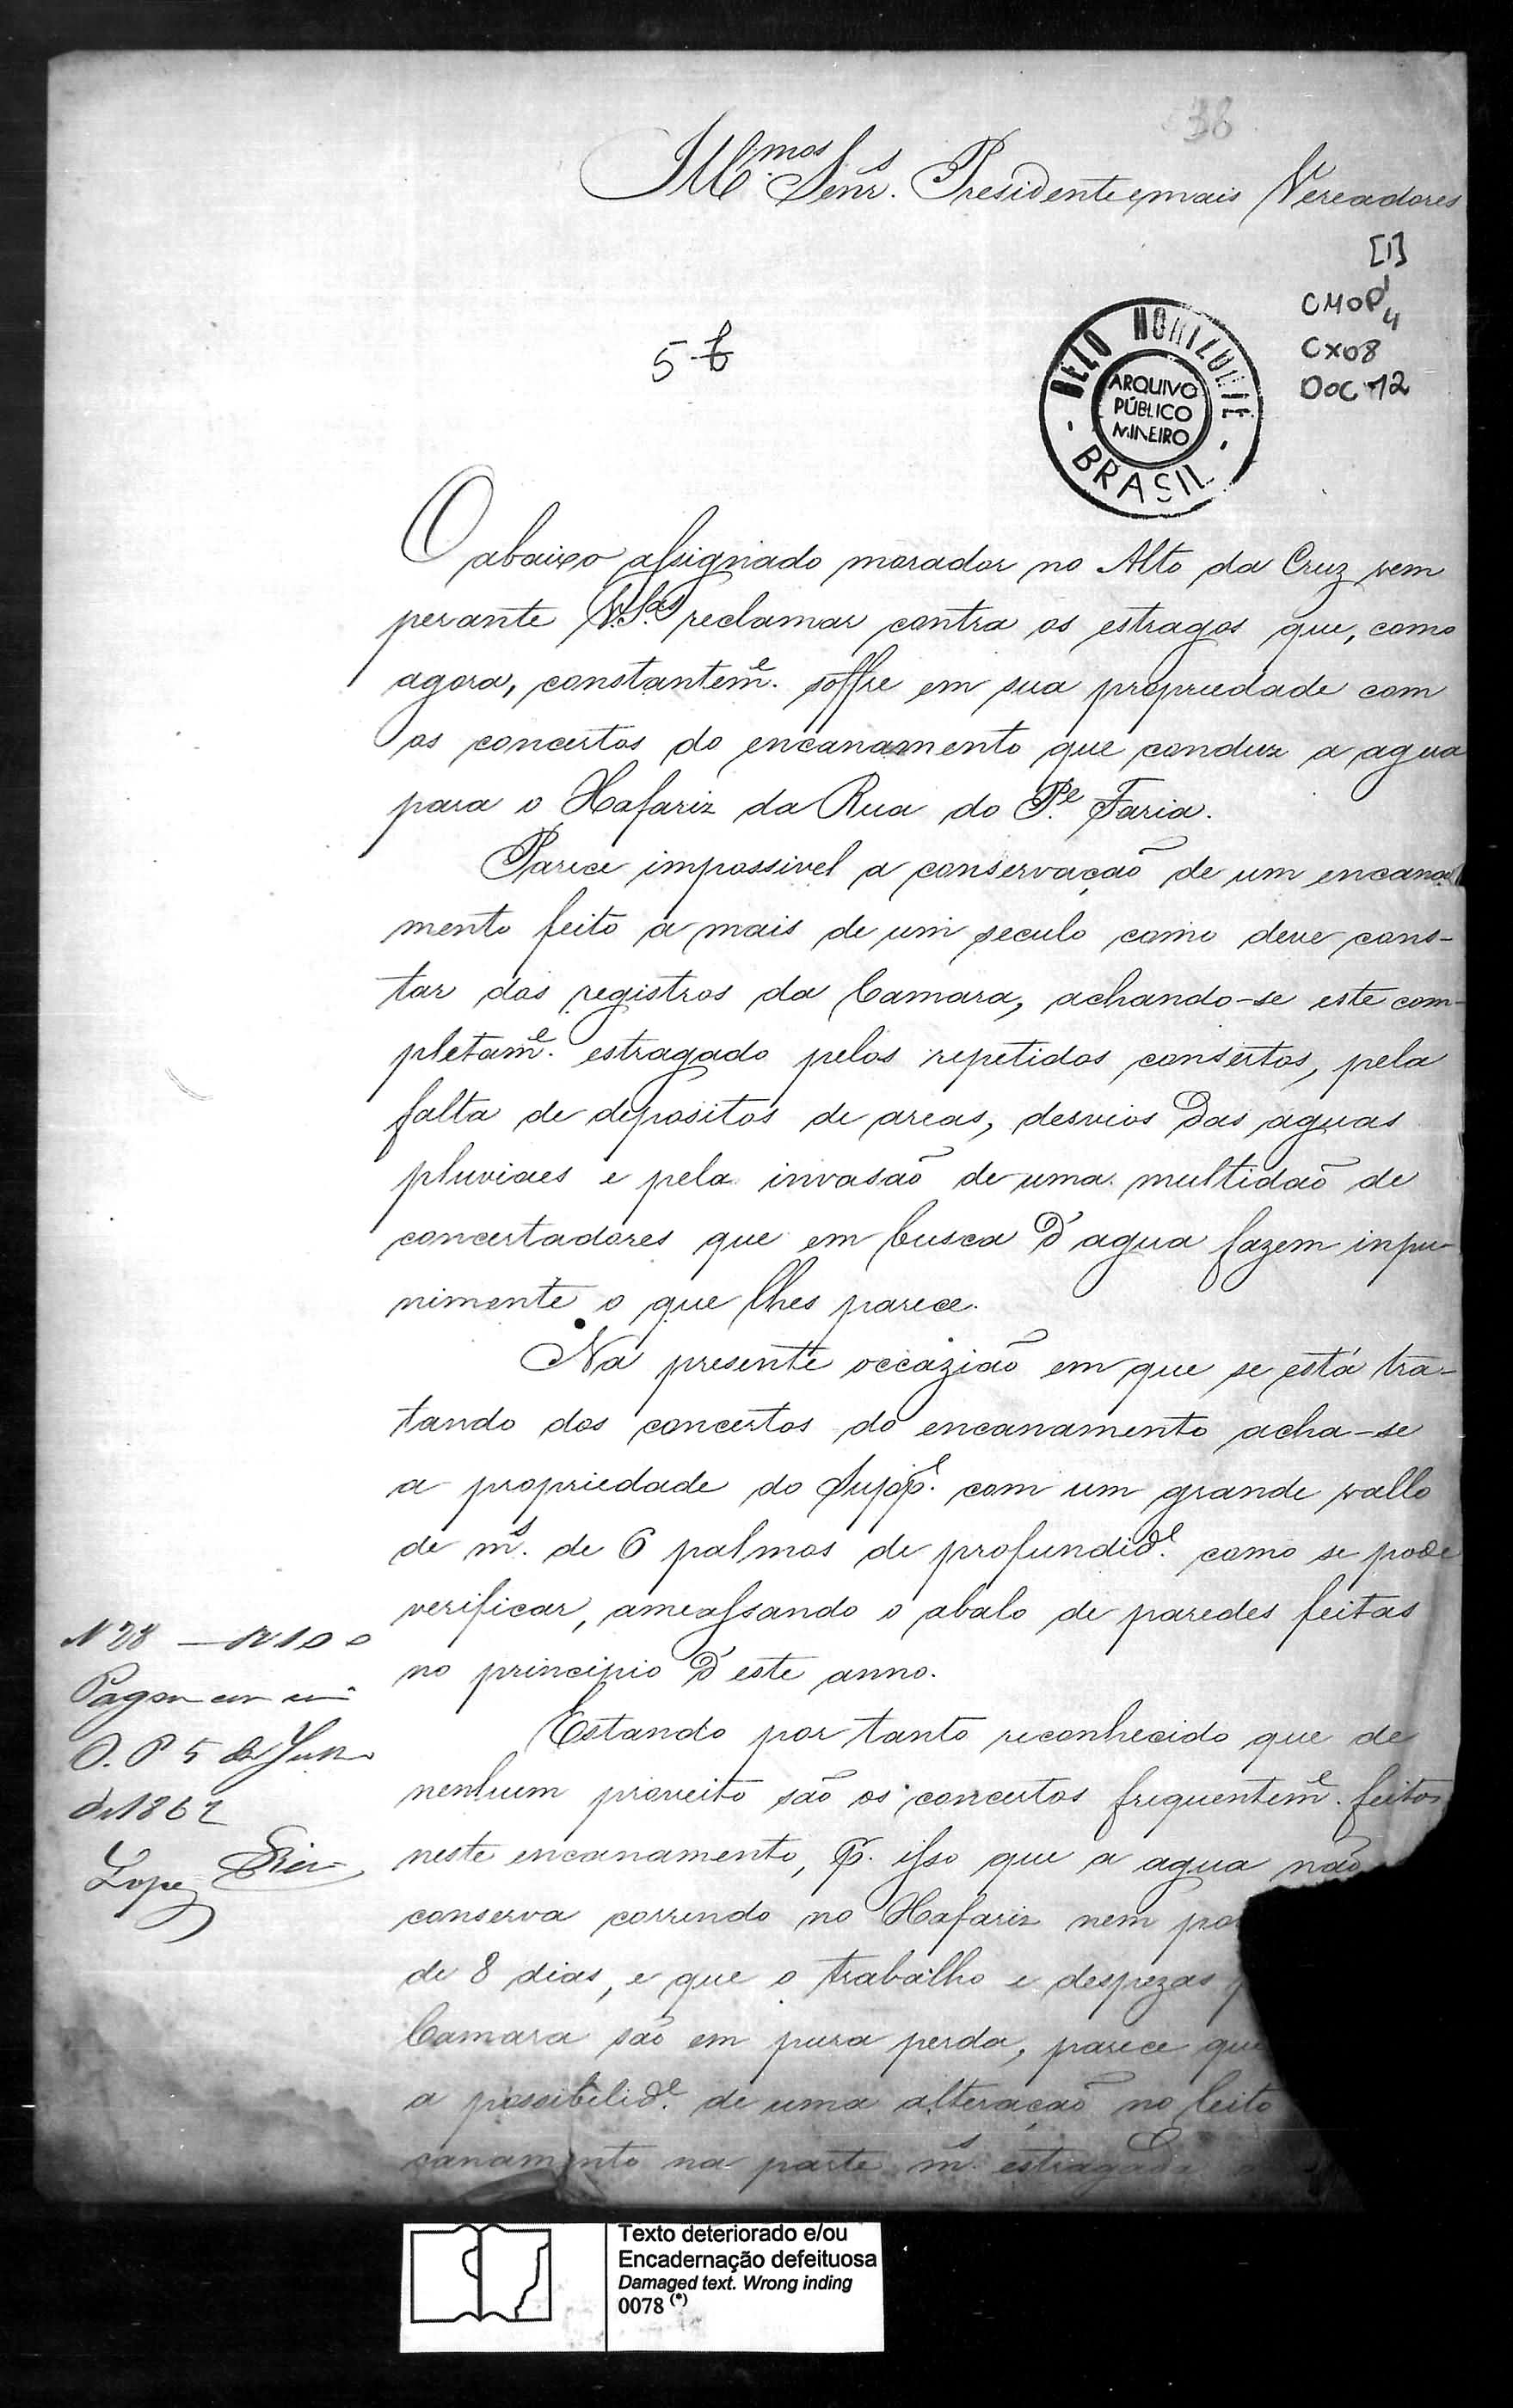 38
Ill.mos Senr.s Presidente e mais Vereadores
[1]
CMOP
4
CX08
DOC 12
5
BELO HORIZONTE
ARQUIVO
PÚBLICO
MINEIRO
- BRASIL -
O abaixo assignado morador no Alto da Cruz vem
perante V.S.as reclamar contra os estragos que, como
agora, constantem.e soffre em sua propriedade com
os concertos do encanamento que conduz a agua
para o Xafariz da Rua do P.e Faria.
Parece impossivel a conservação de um encana
mento feito a mais de um seculo como deve cons-
tar dos registros da Camara, achando-se este com-
pletam.e estragado pelos repetidos consertos, pela
falta de depositos de areas, desvios das aguas
pluviaes e pela invasão de uma multidão de
concertadores que em busca d'agua fazem inpu-
nimente o que lhes parece.
Na presente occazião em que se está tra-
tando dos concertos do encanamento acha-se
a propriedade do Supp.e com um grande vallo
de m.s de 6 palmos de profundid.e como se pode
verificar, ameassando o abalo de paredes feitas
no principio d'este anno.
Estando por tanto reconhecido que de
nenhum proveito são os concertos frequentem.e feitos
neste encanamento, p. isso que a agua não
conserva correndo no Xafariz nem
de 8 dias, e que o trabalho e despezas
Camara são em pura perda, parece que
a possibilid.e de uma alteração no leito
canamento na parte m.s estragada
N 28 — 100
Pagou
O. P 5 de
de 1862
Lopes
Texto deteriorado e/ou
Encadernação defeituosa
Damaged text. Wrong inding
0078 (*)